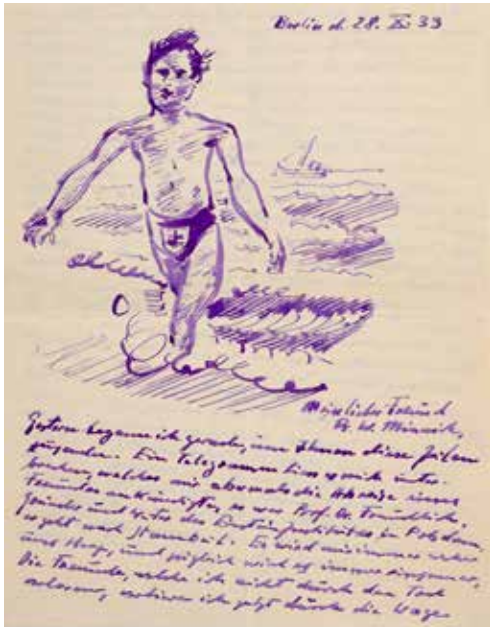 Berlin d. 28. XI 33
Mein lieber Freund
Dr. W. Minnich,
Gestern begann ich gerade, um Ihnen diese Zeilen
zu senden. Ein Telegramm liess mich unter-
brechen, welches mir abermals die Abreise eines
Freundes ankündigte, es war Prof. Dr. Freundlich,
Gründer und Vater des Einsteininstitutes in Potsdam,
er geht nach Stambul. Es wird immer
und täglich wird es immer einsamer,
Die Freunde, welche ich nicht durch den Tod
verlor, verliere ich jetzt durch die Wege